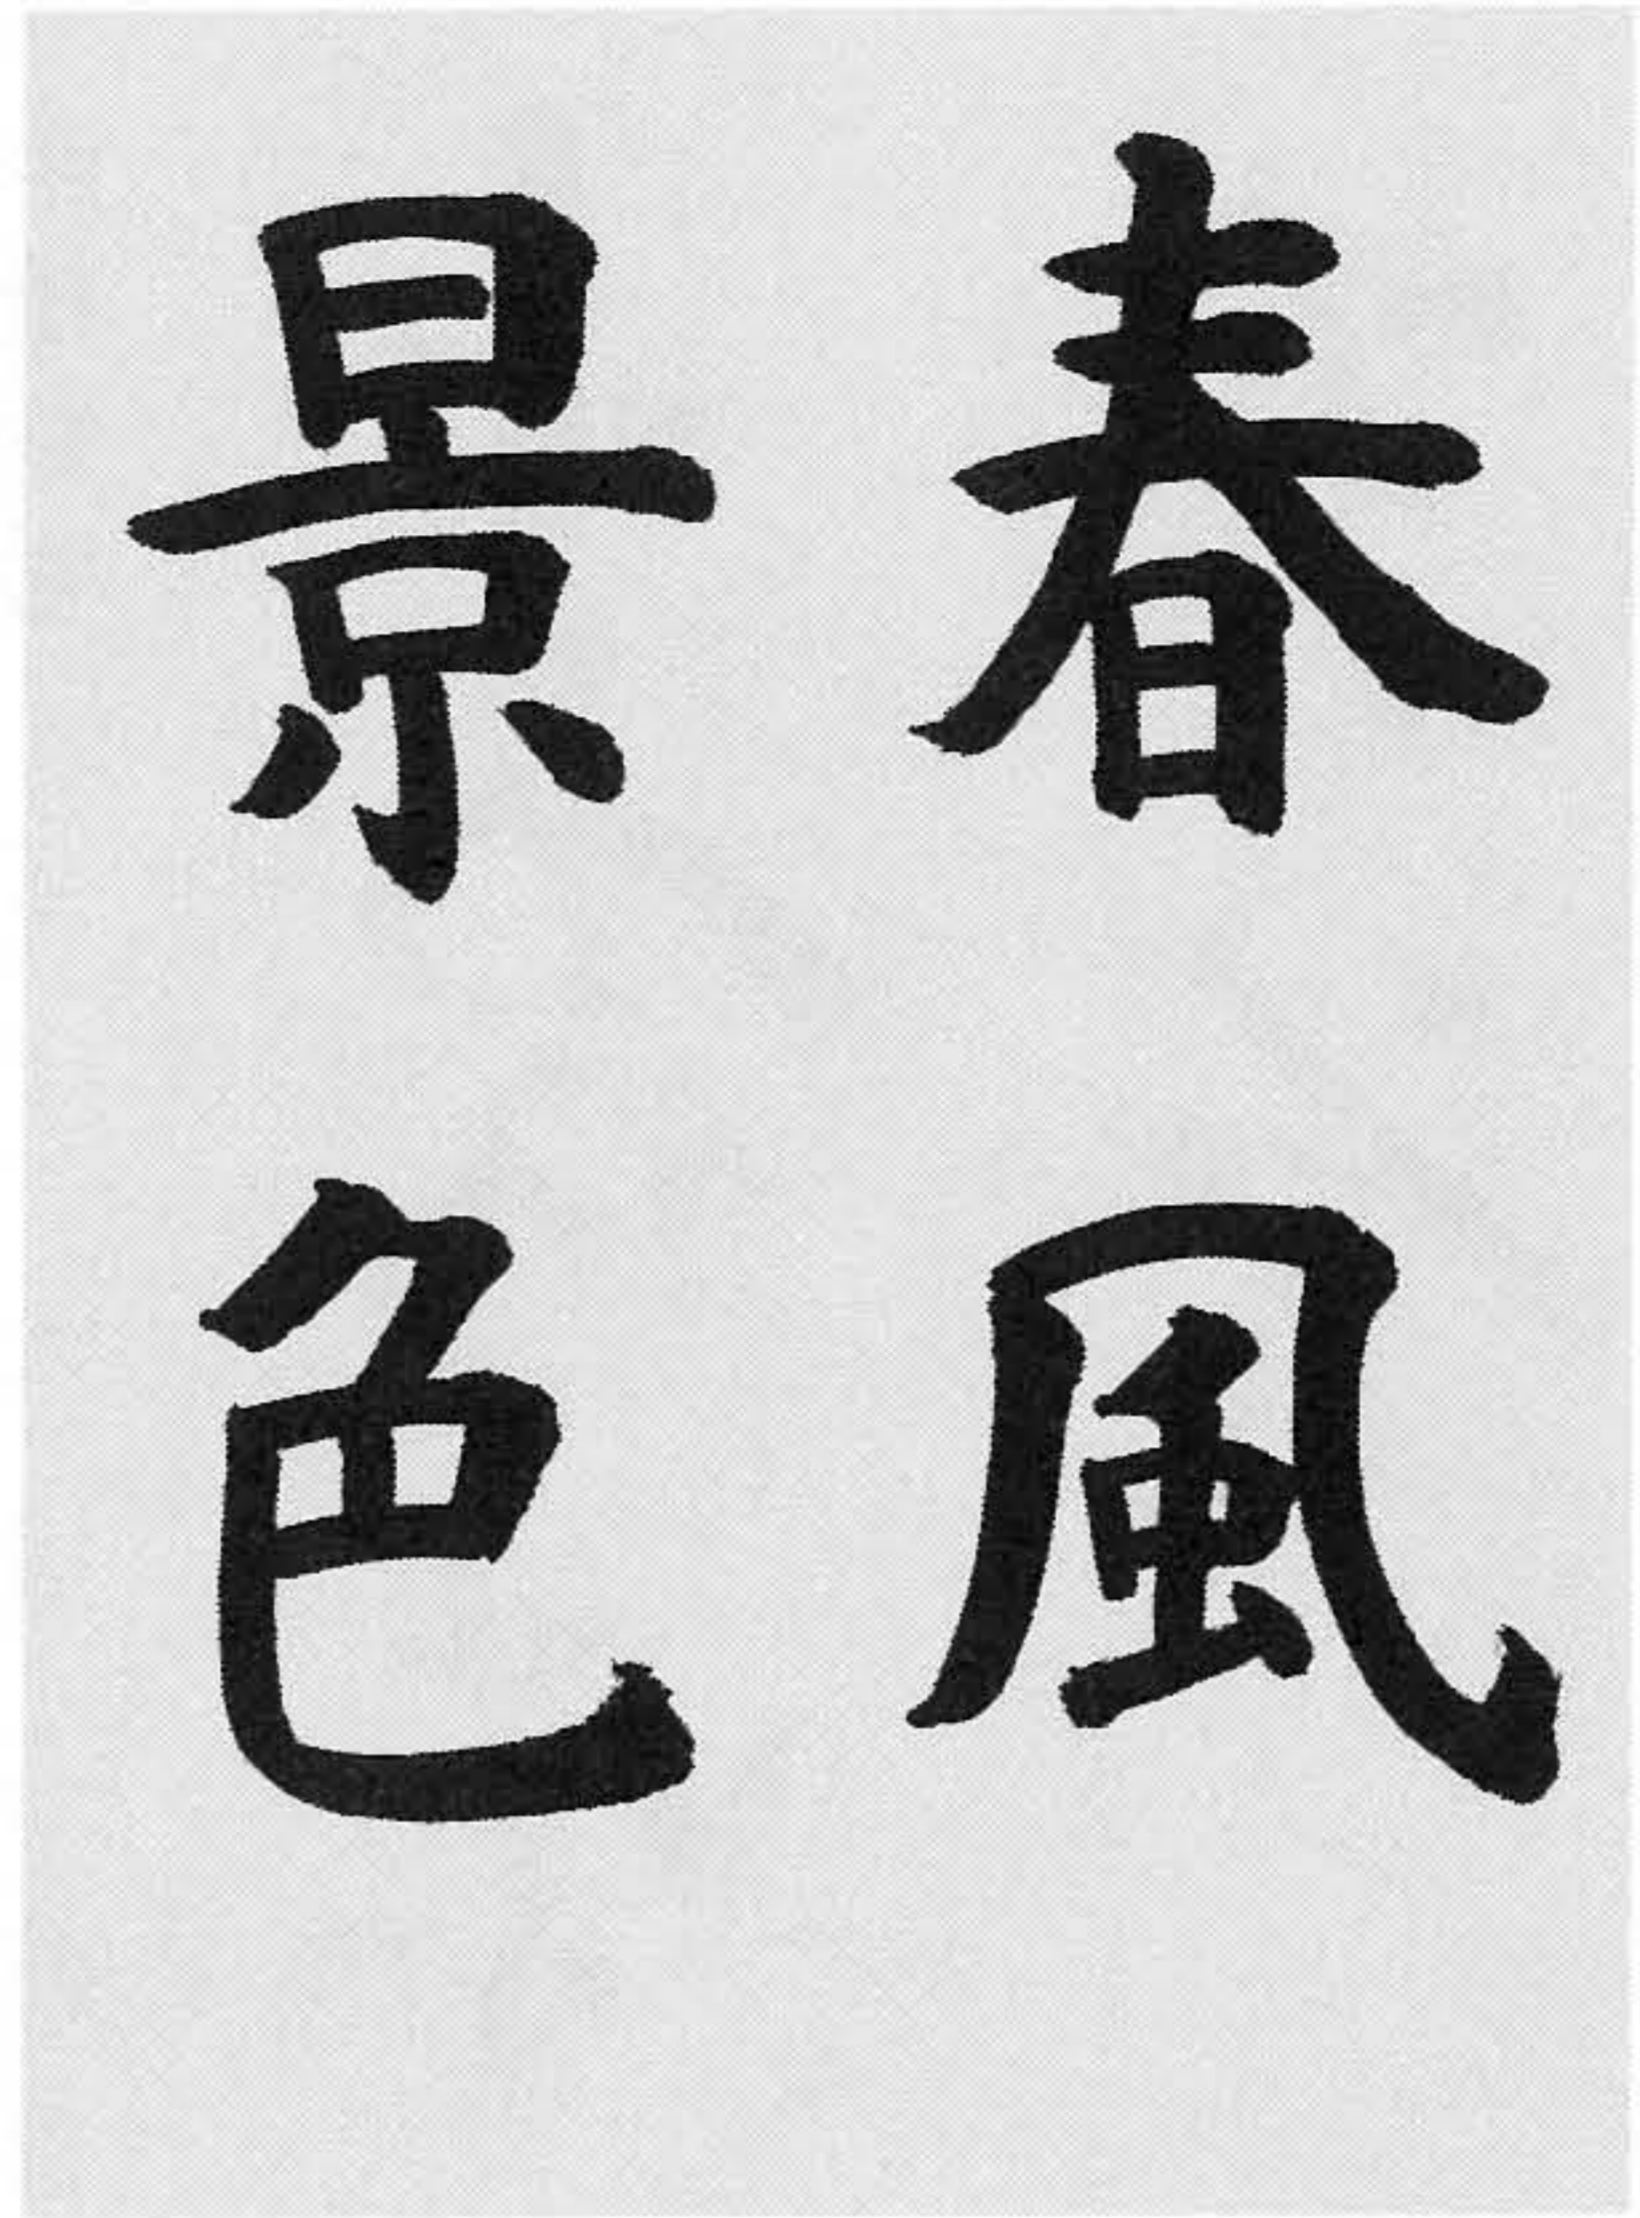 春風
景色